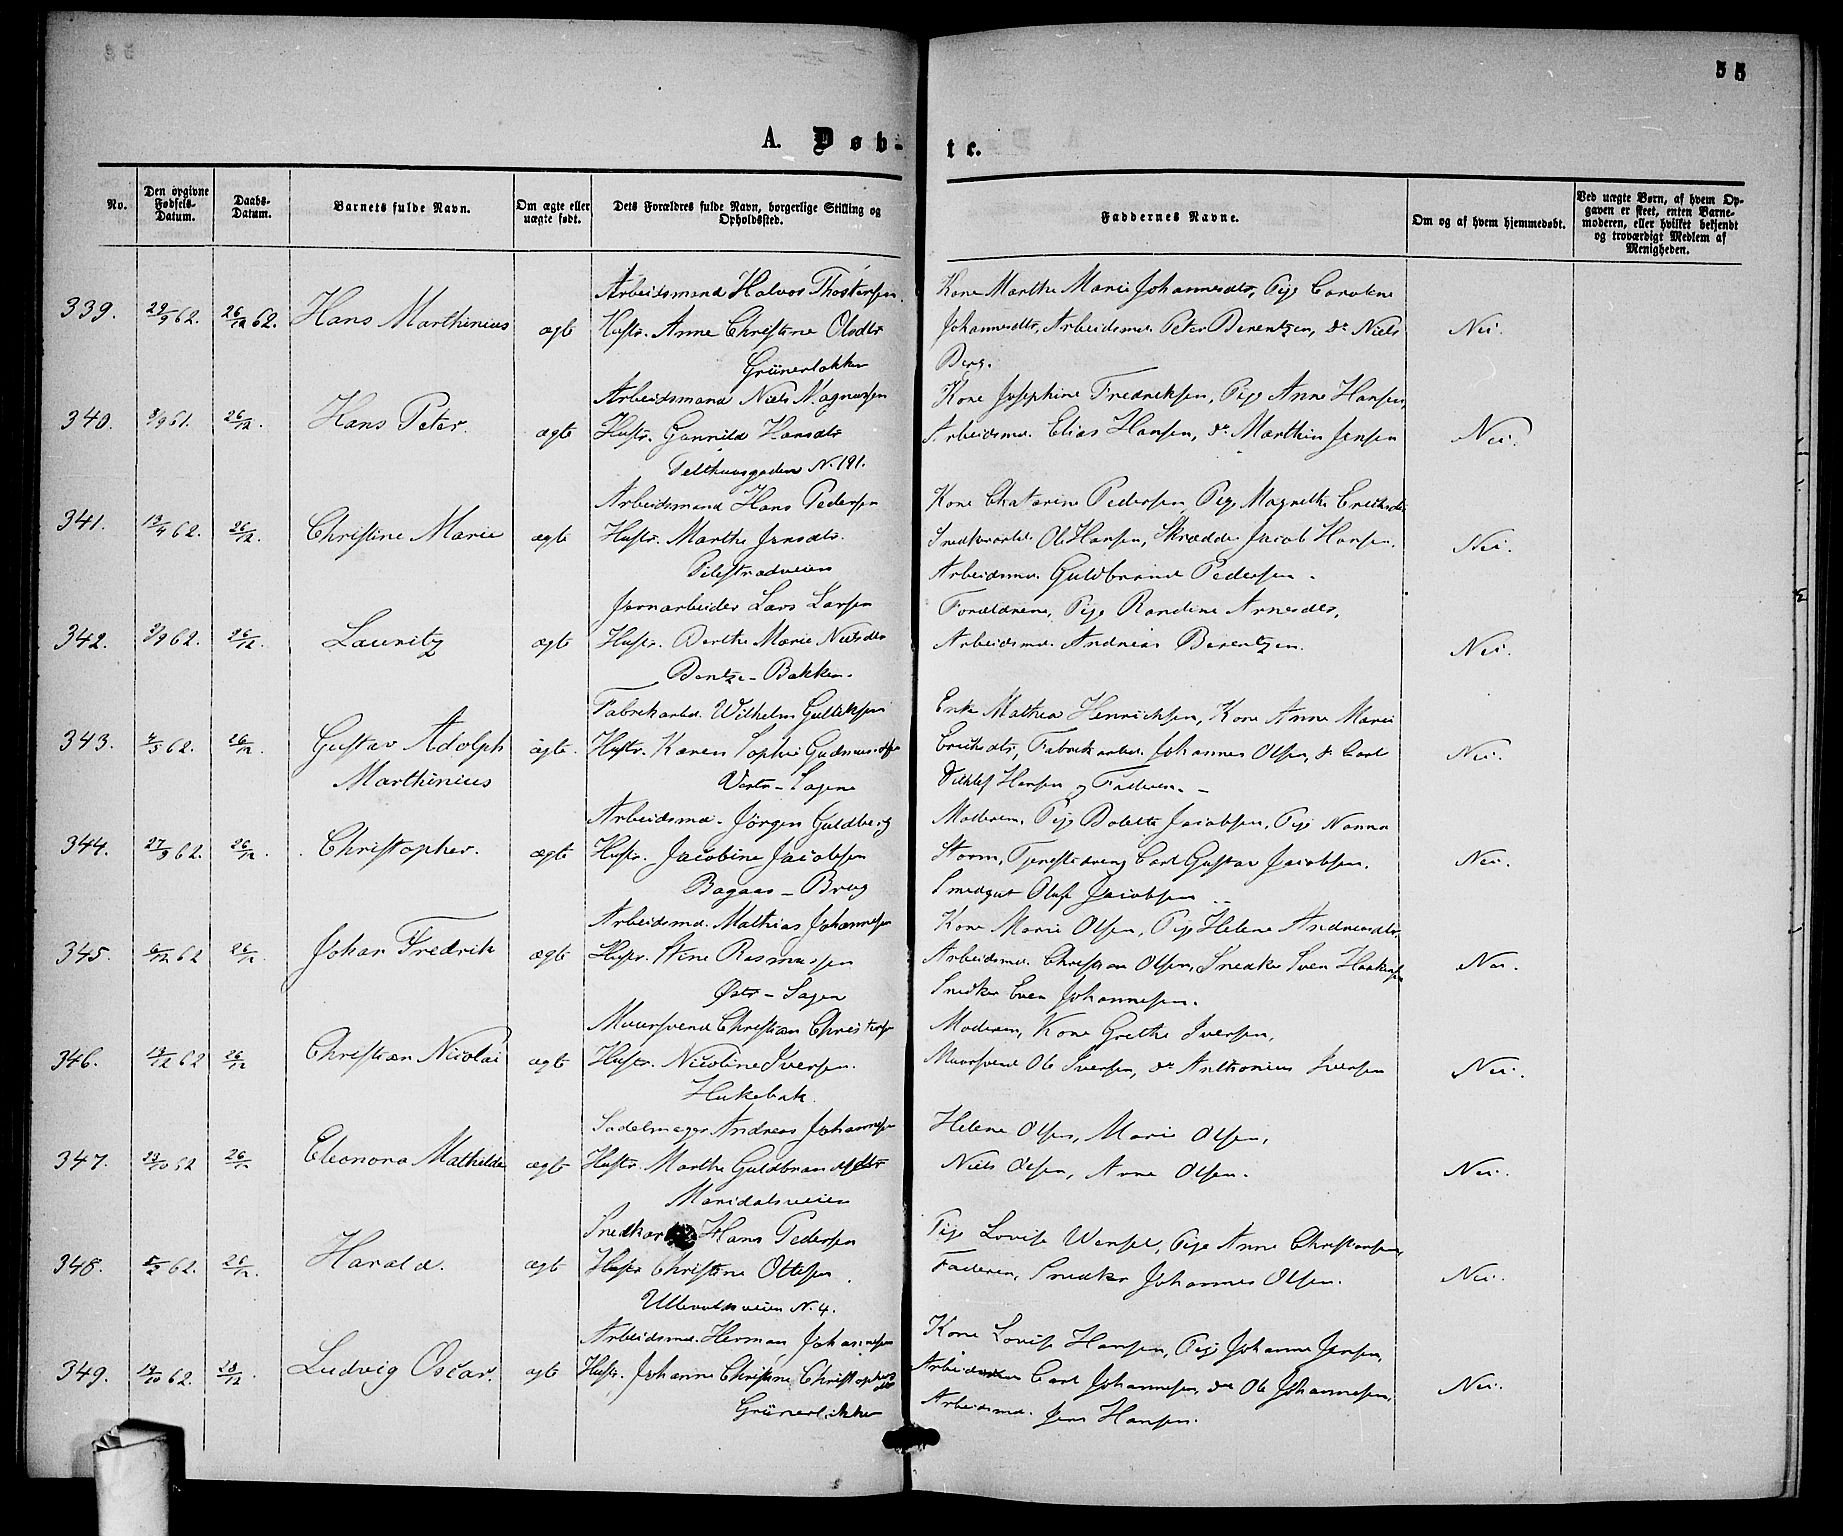 55
A. Døb-
te.
No.
Den opgivne Fødsels-Datum.
Daabs-Datum.
Barnets fulde Navn.
Om ægte eller uægte født.
Dets Forældres fulde Navn, borgerlige Stilling og Opholdssted.
Faddernes Navne.
Om og af hvem hjemmedøbt.
Ved uægte Børn, af hvem Opgaven er skeet, enten Barnemoderen, eller hvilket bekjendt og troværdigt Medlem af Menigheden.
Arbeidsmand Halvor Thostensen.
339. 29/9 62. 26/12 62. Hans Marthinius ægte Hustr. Anne Christine Olsdtr
Grünerløkken
Kone Marthe Marie Johannesdtr, Pige Caroline
Johannesdtr, Arbeidsmd. Peter Berentzen, do Niels Nei.
Berg.
Arbeidsmand Niels Magnussen
340. 9/9 61. 26/12. Hans Peter. ægte Hustr. Gunnild Hansdtr
Telthuusgaden N. 191.
Kone Josephine Fredriksen, Pige Anne Hansen,
Arbeidsmd. Elias Hansen, do Marthin Jensen Nei.
Arbeidsmand Hans Pedersen
341. 13/4 62. 26/12. Christine Marie ægte Hustr. Marthe Jensdtr.
Pilestrædveien
Kone Chatarine Pedersen, Pige Magnethe Eriksdtr
Snedkerarbd. Ole Hansen, Skrædder Jacob Hansen. Nei.
Arbeidsmd. Guldbrand Pedersen.
Jernarbeider Lars Larsen
342. 9/9 62. 26/12. Lauritz ægte Hustr. Berthe Marie Nielsdtr
Bentze-Bakken.
Forældrene, Pige Randine Arnesdtr,
Arbeidsmd. Andreas Berentzen. Nei.
Fabrikarbd. Wilhelm Gulliksen
343. 4/5 62. 26/12. Gustav Adolph ægte. Hustr. Karen Sophie Gudmundsen
Marthinius Vestr-Sagene
Enke Mathea Henriksen, Kone Anne Marie
Eriksdtr, Fabrikarbd. Johannes Olsen, do Carl Nei.
Ditlef Hansen og Faderen.
Arbeidsmd. Jörgen Guldberg
344. 27/9 62. 26/12. Christopher. ægte Hustr. Jacobine Jacobsen
Bagaas-Brug
Moderen, Pige Bolette Jacobsen, Pige Nanna
Storm, Tjenestedreng Carl Gustav Jacobsen. Nei.
Smedgut Oluf Jacobsen
Arbeidsmd. Mathias Johannesen
345. 6/12 62 26/12. Johan Fredrik ægte Hustr. Stine Rasmussen
Østr-Sagen
Kone Marie Olsen, Pige Helene Andreasdtr.
Arbeidsmd. Christian Olsen, Snedker Sven Haakensen Nei.
Snedker Even Johannesen.
Muursvend Christian Christensen
346. 13/12 62 26/12 Christian Nicolai ægte Hustr. Nicoline Iversen.
Hukebak.
Moderen, Kone Grethe Iversen,
Muursvend Ole Iversen, do Anthonius Iversen Nei.
Sadelmager Andreas Johannesen
347. 23/10 62 26/12 Eleonora Mathilde ægte Hustr. Marthe Guldbrandsdtr
Maridalsveien
Helene Olsen, Marie Olsen,
Niels Olsen, Anne Olsen. Nei.
Snedker Hans Pedersen
348. 5/2 62. 26/12. Harald. ægte Hustr Christine Ottesen.
Ullevoldsveien N. 4.
Pige Lovise Wensel, Pige Anne Christensen,
Faderen, Snedker Johannes Olsen. Nei.
Arbeidsmd. Herman Johannesen
349. 19/10 62. 28/12. Ludvig Oscar. ægte Hustr. Johanne Christine Christophersdtr
Grünerløkken
Kone Lovise Hansen, Pige Johanne Jensen,
Arbeidsmd Carl Johannesen, do Ole Johannesen, Nei.
Arbeidsmd. Jens Hansen.